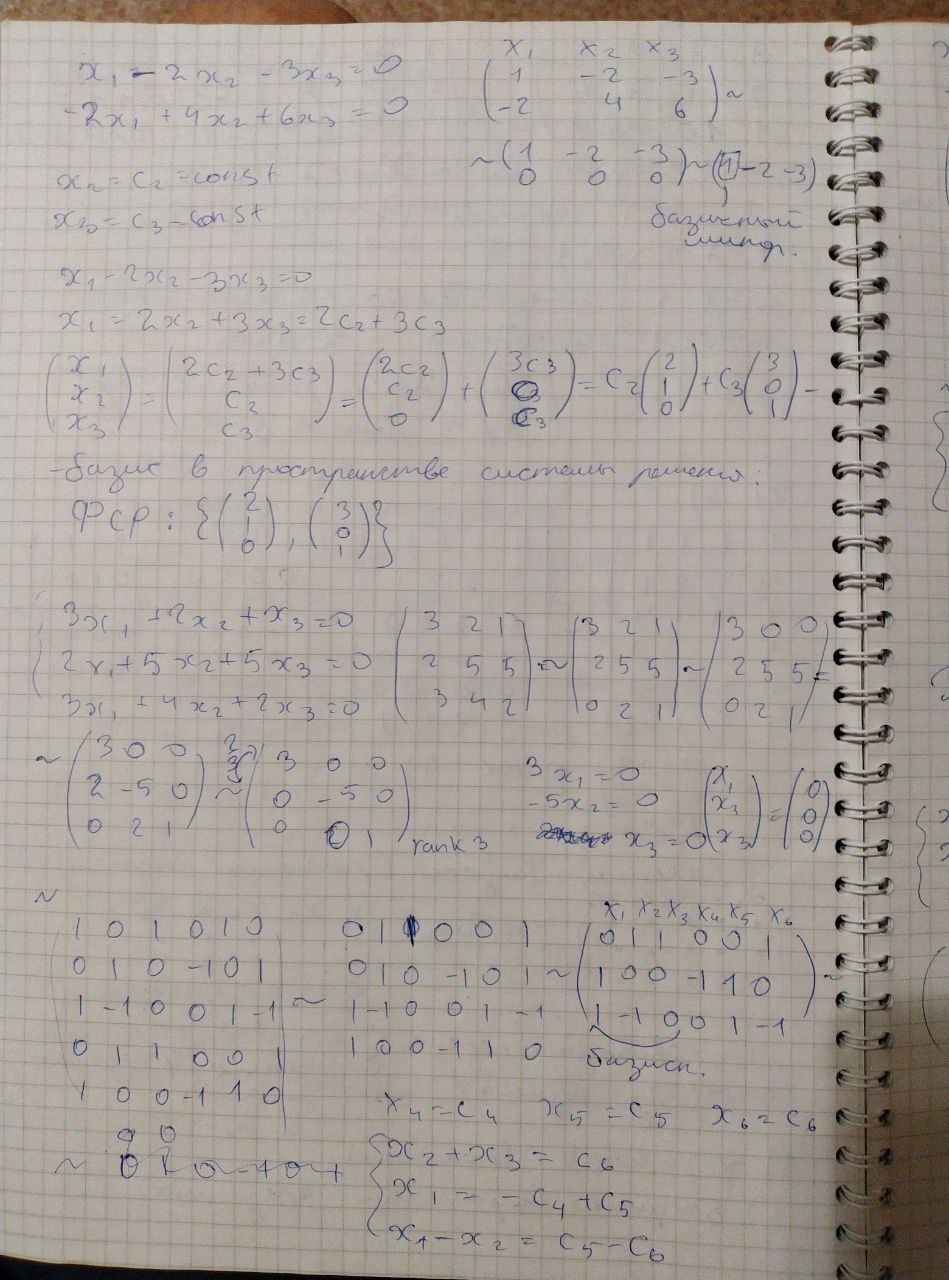 x₁ - 2x₂ - 3x₃ = 0
-2x₁ + 4x₂ + 6x₃ = 0
x₁ x₂ x₃
(1 -2 -3
-2 4 6) ~
~ (1 -2 -3
0 0 0) ~ (1 -2 -3)
базисный
минор.
x₂ = c₂ = const
x₃ = c₃ - const
x₁ - 2x₂ - 3x₃ = 0
x₁ = 2x₂ + 3x₃ = 2c₂ + 3c₃
(x₁ x₂ x₃) = (2c₂ + 3c₃ c₂ c₃) = (2c₂ c₂ 0) + (3c₃ 0 c₃) = c₂ (2 1 0) + c₃ (3 0 1) -
- базис в пространстве системы решения:
ФСР: {(2 1 0), (3 0 1)}
3x₁ + 2x₂ + x₃ = 0
2x₁ + 5x₂ + 5x₃ = 0
3x₁ + 4x₂ + 2x₃ = 0
(3 2 1
2 5 5
3 4 2) ~
(3 2 1
2 5 5
0 2 1) ~
(3 0 0
2 5 5
0 2 1) =
~ (3 0 0
2 -5 0
0 2 1) ~
(3 0 0
0 -5 0
0 0 1) rank 3
3x₁ = 0
-5x₂ = 0
x₃ = 0
(x₁ x₂ x₃) = (0 0 0)
~
(1 0 1 0 1 0
0 1 0 -1 0 1
1 -1 0 0 1 -1
0 1 1 0 0 1
1 0 0 -1 1 0) ~
0 1 1 0 0 1
0 1 0 -1 0 1
1 -1 0 0 1 -1
1 0 0 -1 1 0 ~
x₁ x₂ x₃ x₄ x₅ x₆
(0 1 1 0 0 1
1 0 0 -1 1 0
1 -1 0 0 1 -1) ~
базисн.
x₄ = c₄ x₅ = c₅ x₆ = c₆
{x₂ + x₃ = c₆
x₁ = - c₄ + c₅
x₁ - x₂ = c₅ - c₆